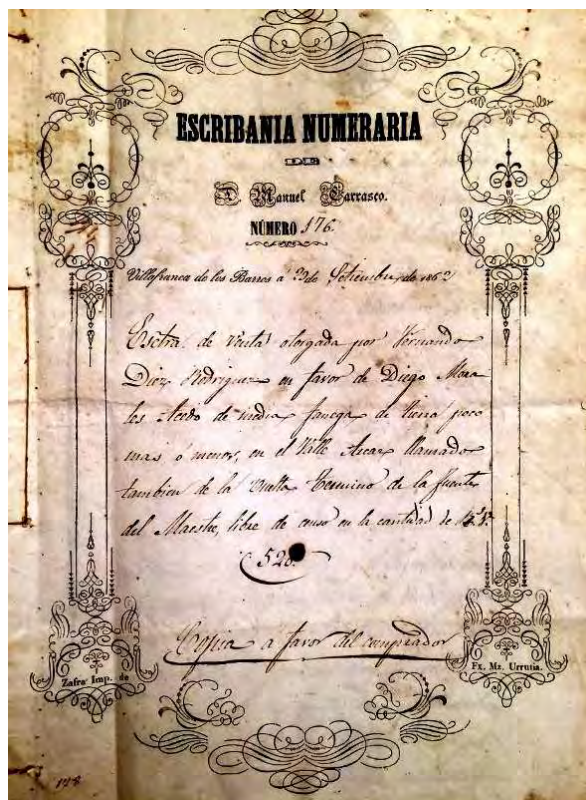 ESCRIBANIA NUMERARIA
DE
D. Manuel Carrasco.
NÚMERO 176.
Villafranca de los Barros á 22 de Setiembre de 1862
Esctra. de venta otorgada por Fernando
Diez Rodriguez en favor de Diego Mora
les Acedo de media fanega de tierra poco
mas ó menos, en el Valle Arcar llamado
tambien de la Vuelta Termino de la fuente
del Maestre, libre de censo en la cantidad de
520
Copia a favor del comprador
Zafra: Imp. de
Fx. Mz. Urrutia.